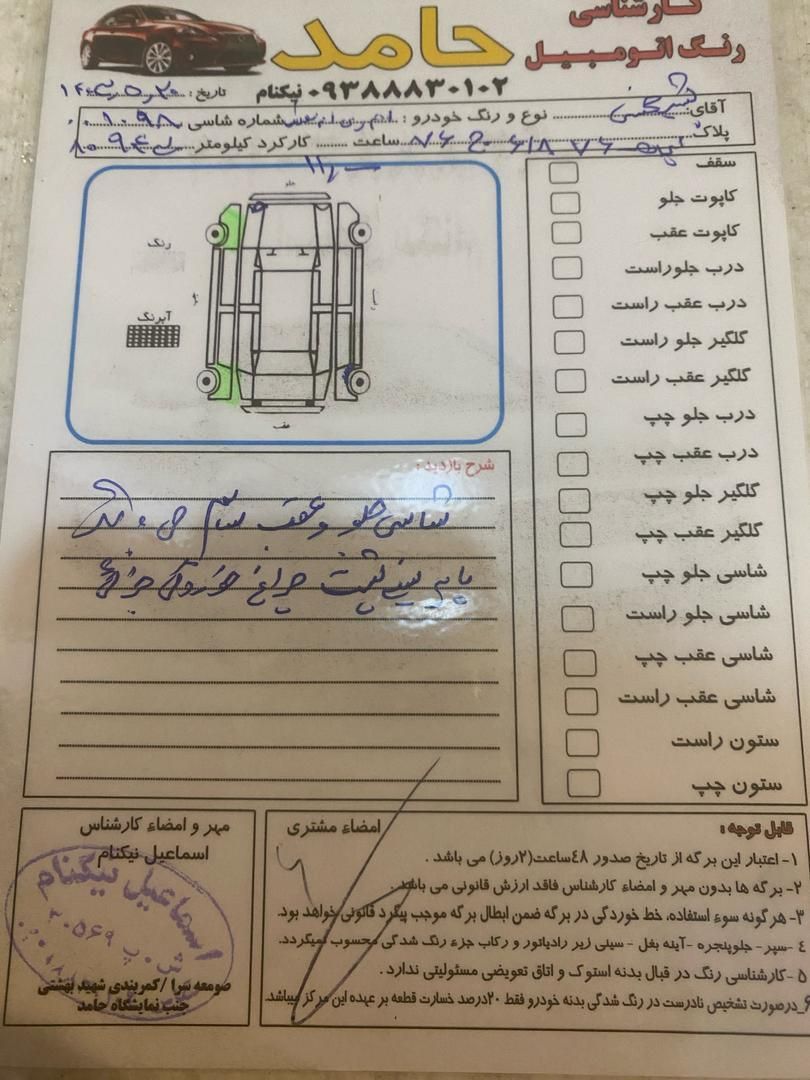 کارشناسی
رنگ اتومبیل
حامد
۰۹۳۸۸۸۳۰۱۰۲ نیکنام
تاریخ :
آقای: نوع و رنگ خودرو : شماره شاسی
پلاک ساعت کارکرد کیلومتر
سقف
کاپوت جلو
کاپوت عقب
درب جلو راست
درب عقب راست
گلگیر جلو راست
گلگیر عقب راست
درب جلو چپ
درب عقب چپ
گلگیر جلو چپ
گلگیر عقب چپ
شاسی جلو چپ
شاسی جلو راست
شاسی عقب چپ
شاسی عقب راست
ستون راست
ستون چپ
جلو
رنگ
آبرنگ
عقب
شرح بازدید :
شاسی جلو و عقب سالم
چراغ
قابل توجه :
۱- اعتبار این برگه از تاریخ صدور ۴۸ساعت(۲روز) می باشد .
۲- برگه ها بدون مهر و امضاء کارشناس فاقد ارزش قانونی می باشد .
۳- هرگونه سوء استفاده، خط خوردگی در برگه ضمن ابطال برگه موجب پیگرد قانونی خواهد بود.
۴-سپر- جلوپنجره -آینه بغل - سینی زیر رادیاتور و رکاب جزء رنگ شدگی محسوب نمیگردد.
۵-کارشناسی رنگ در قبال بدنه استوک و اتاق تعویضی مسئولیتی ندارد .
۶_درصورت تشخیص نادرست در رنگ شدگی بدنه خودرو فقط ۲۰درصد خسارت قطعه بر عهده این مرکز میباشد.
امضاء مشتری
مهر و امضاء کارشناس
اسماعیل نیکنام
اسماعیل نیکنام
صومعه سرا /کمربندی شهید بهشتی
جنب نمایشگاه حامد